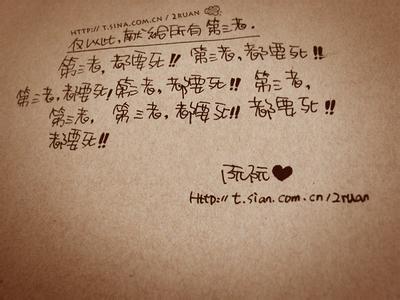 HTTP://T.SINA.COM.CN/2RUAN
仅以此,献给所有第三者.
第三者,都要死!! 第三者,都要死!!
第三者,都要死!第三者,都要死!! 第三者,
第三者, 第三者,都要死!! 都要死!!
都要死!!
阮阮♥
Http://t.sian.com.cn/2ruan